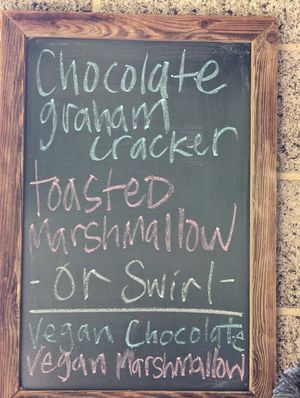 Chocolate
graham
cracker
toasted
Marshmallow
-or Swirl-
Vegan Chocolate
Vegan Marshmallow